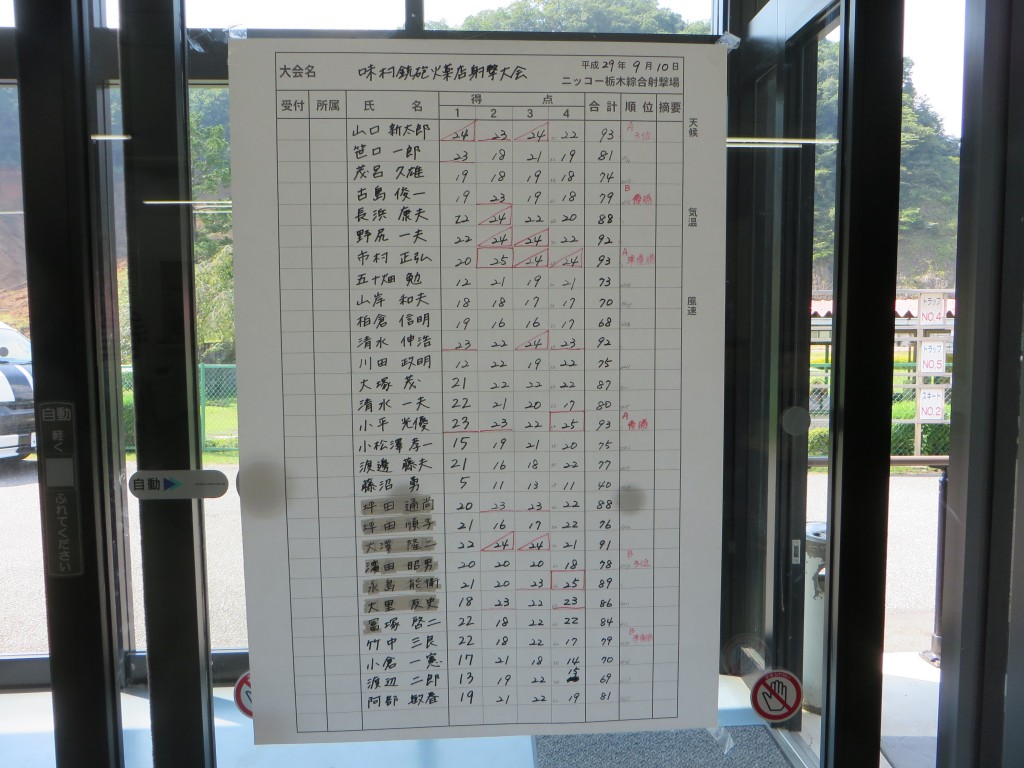 大会名 味村銃砲火薬店射撃大会 平成29年9月10日
ニッコー栃木綜合射撃場
受付 所属 氏名 得点 合計 順位 摘要
1 2 3 4
山口 新太郎 24 23 24 22 93 A 3位
笹口 一郎 23 18 21 19 81
茂呂 久雄 19 18 19 18 74
古島 俊一 19 23 19 18 79 B 優勝
長浜 康夫 22 24 22 20 88
野尻 一夫 22 24 24 22 92
市村 正弘 20 25 24 24 93 A 準優勝
五十畑 勉 12 21 19 21 73
山岸 和夫 18 18 17 17 70
柏倉 信明 19 16 16 17 68
清水 伸浩 23 22 24 23 92
川田 政明 12 22 19 22 75
大塚 茂 21 22 22 22 87
清水 一夫 22 21 20 17 80
小平 光優 23 23 22 25 93 A 優勝
小松澤 孝一 15 19 21 20 75
渡邊 藤夫 21 16 18 22 77
藤沼 勇 5 11 13 11 40
坪田 通尚 20 23 23 22 88
坪田 順子 21 16 17 22 76
大澤 隆二 22 24 24 21 91
濱田 昭男 20 20 20 18 78 B 3位
永島 能衛 21 20 23 25 89
大里 友史 18 23 22 23 86
冨塚 啓二 22 18 22 22 84
竹中 三良 22 18 22 17 79 B 準優勝
小倉 一憲 17 21 18 14 70
渡辺 二郎 13 19 22 15 69
阿部 敏春 19 21 22 19 81
天候
気温
風速
自動
軽く
ふれてください
自動
トラップ
NO.4
トラップ
NO.5
スキート
NO.2